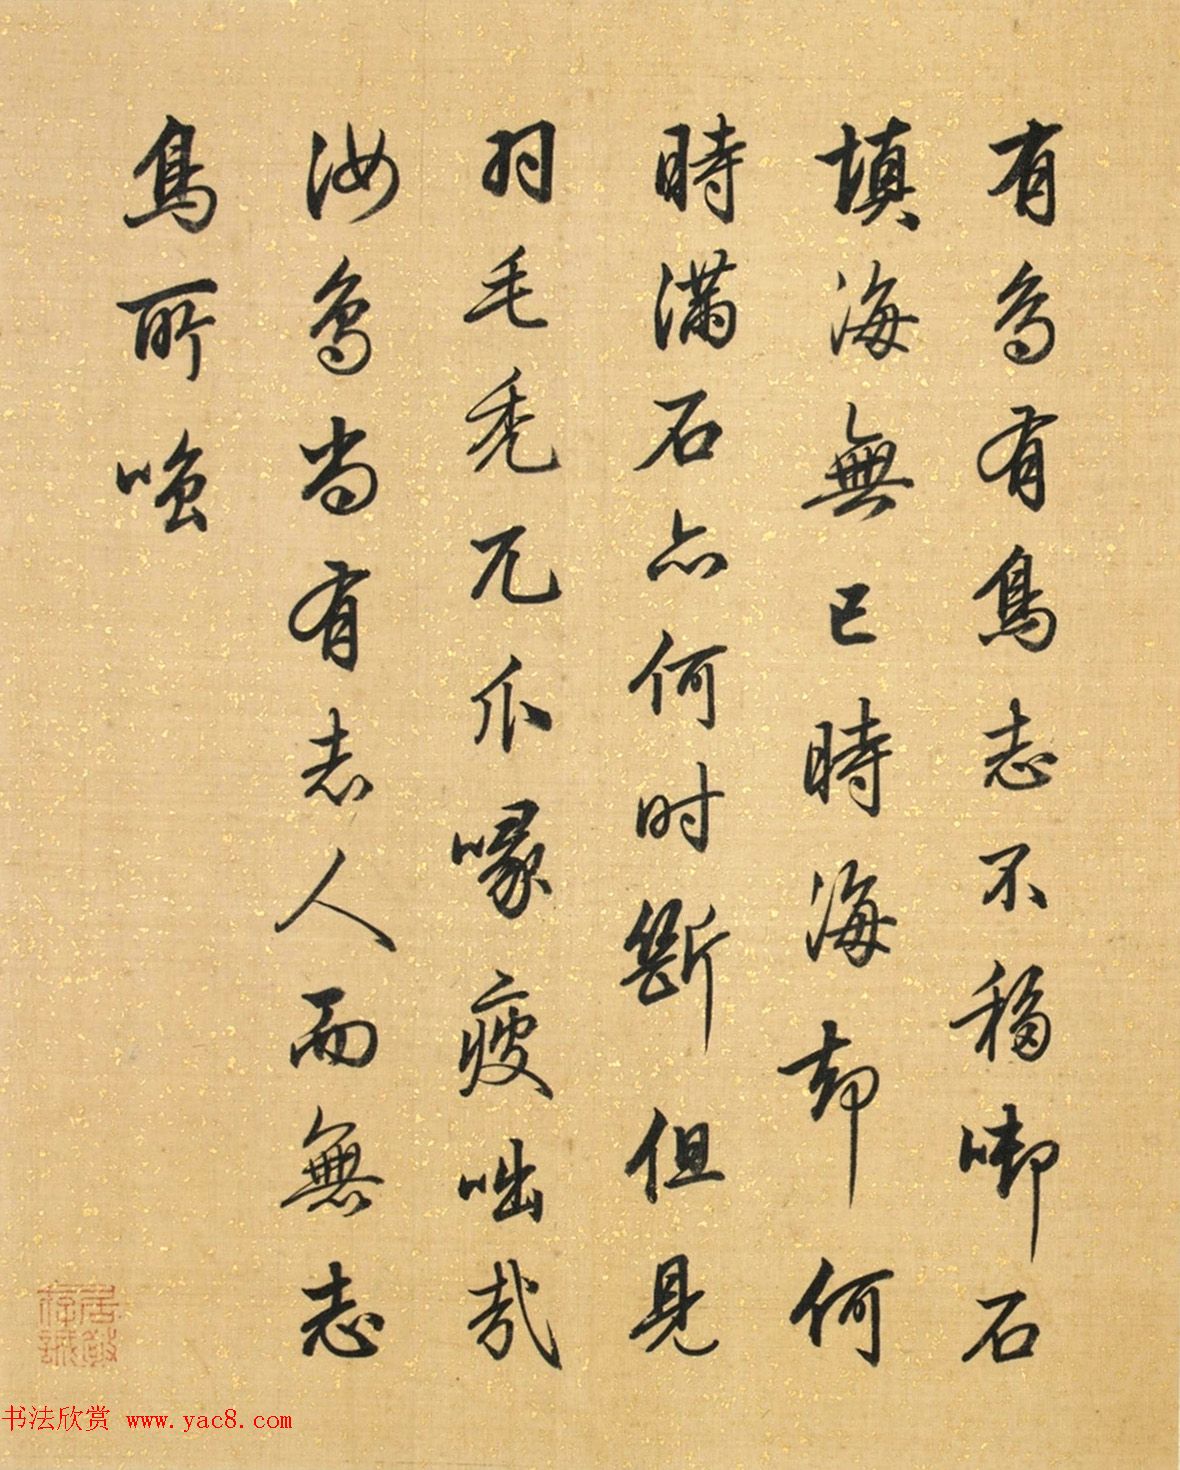 有鳥有鳥志不移啣石
填海無已時海却何
時滿石亦何时斷但見
羽毛秃兀爪喙瘦咄哉
汝鳥尚有志人而無志
鳥所嗤
居敬
存誠
书法欣赏 www.yac8.com